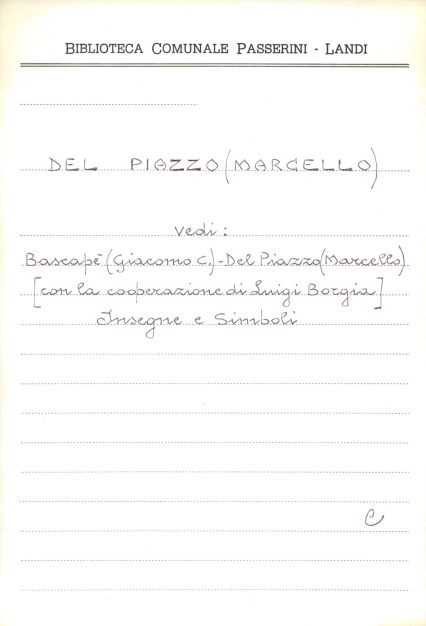 BIBLIOTECA COMUNALE PASSERINI - LANDI
DEL PIAZZO (MARCELLO)
vedi :
Bascapè (Giacomo C.) - Del Piazzo (Marcello)
[con la cooperazione di Luigi Borgia]
Insegne e Simboli
C